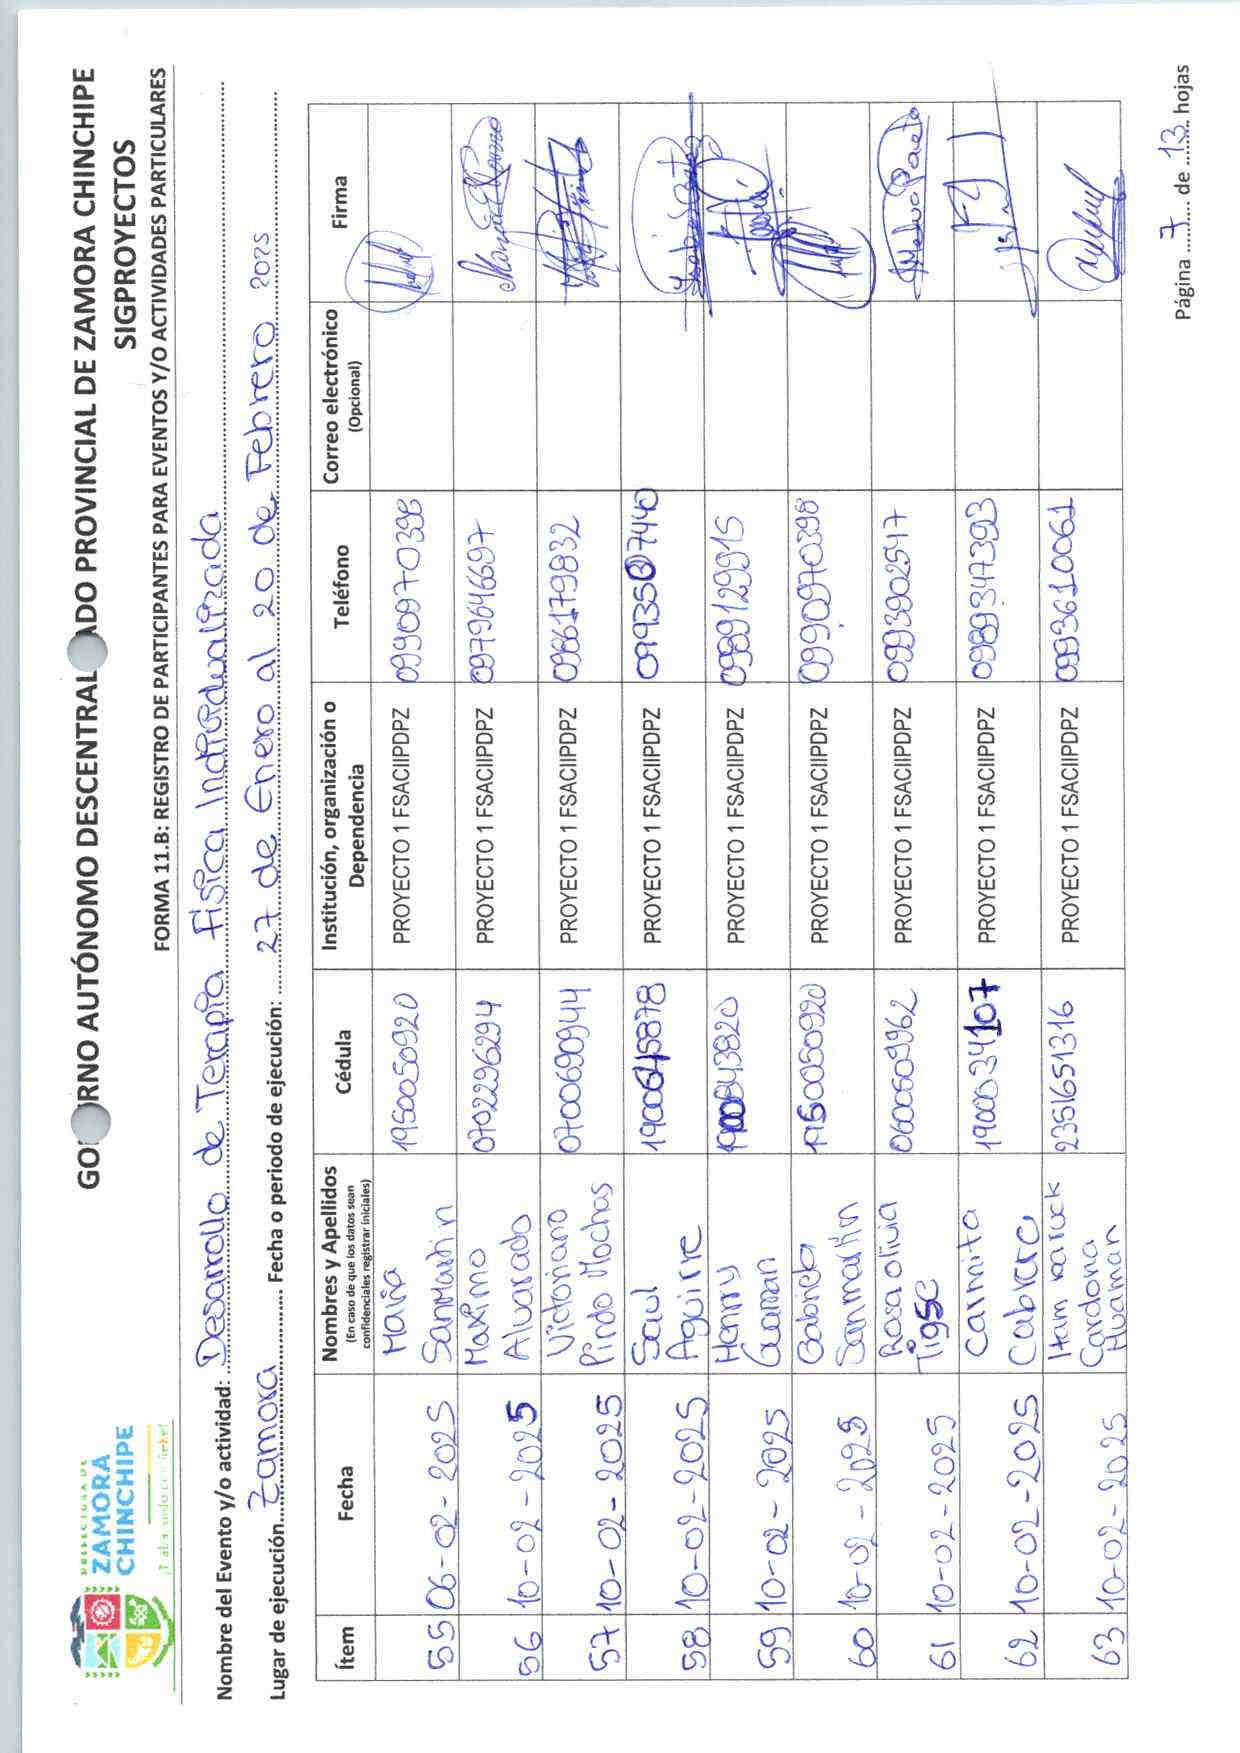 PREFECTURA DE
ZAMORA
CHINCHIPE
GO RNO AUTÓNOMO DESCENTRAL ADO PROVINCIAL DE ZAMORA CHINCHIPE
SIGPROYECTOS
FORMA 11.B: REGISTRO DE PARTICIPANTES PARA EVENTOS Y/O ACTIVIDADES PARTICULARES
Nombre del Evento y/o actividad: Desarrollo de Terapia Física Individualizada
Lugar de ejecución Zamora Fecha o periodo de ejecución: 27 de Enero al 20 de Febrero 2025
Ítem Fecha Nombres y Apellidos (En caso de que los datos sean confidenciales registrar iniciales) Cédula Institución, organización o Dependencia Teléfono Correo electrónico (Opcional) Firma
55 06-02-2025 Maira Sanmartin 1950050920 PROYECTO 1 FSACIIPDPZ 0990970398
56 10-02-2025 Maximo Alvarado 0702296294 PROYECTO 1 FSACIIPDPZ 0979646697
57 10-02-2025 Victoriano Pindo Mochas 0700690944 PROYECTO 1 FSACIIPDPZ 0986179832
58 10-02-2025 Saul Aguirre 1900645878 PROYECTO 1 FSACIIPDPZ 0993507440
59 10-02-2025 Henrry Guaman 1900843820 PROYECTO 1 FSACIIPDPZ 0989129915
60 10-02-2025 Gabriela Sanmartin 1950050920 PROYECTO 1 FSACIIPDPZ 0990970398
61 10-02-2025 Rosa Olivia Tigse 0600509962 PROYECTO 1 FSACIIPDPZ 0993902547
62 10-02-2025 Carmita Cabrera 1900534107 PROYECTO 1 FSACIIPDPZ 0989347393
63 10-02-2025 Cardona Huaman 2351651316 PROYECTO 1 FSACIIPDPZ 0993610061
Página 7 de 13 hojas